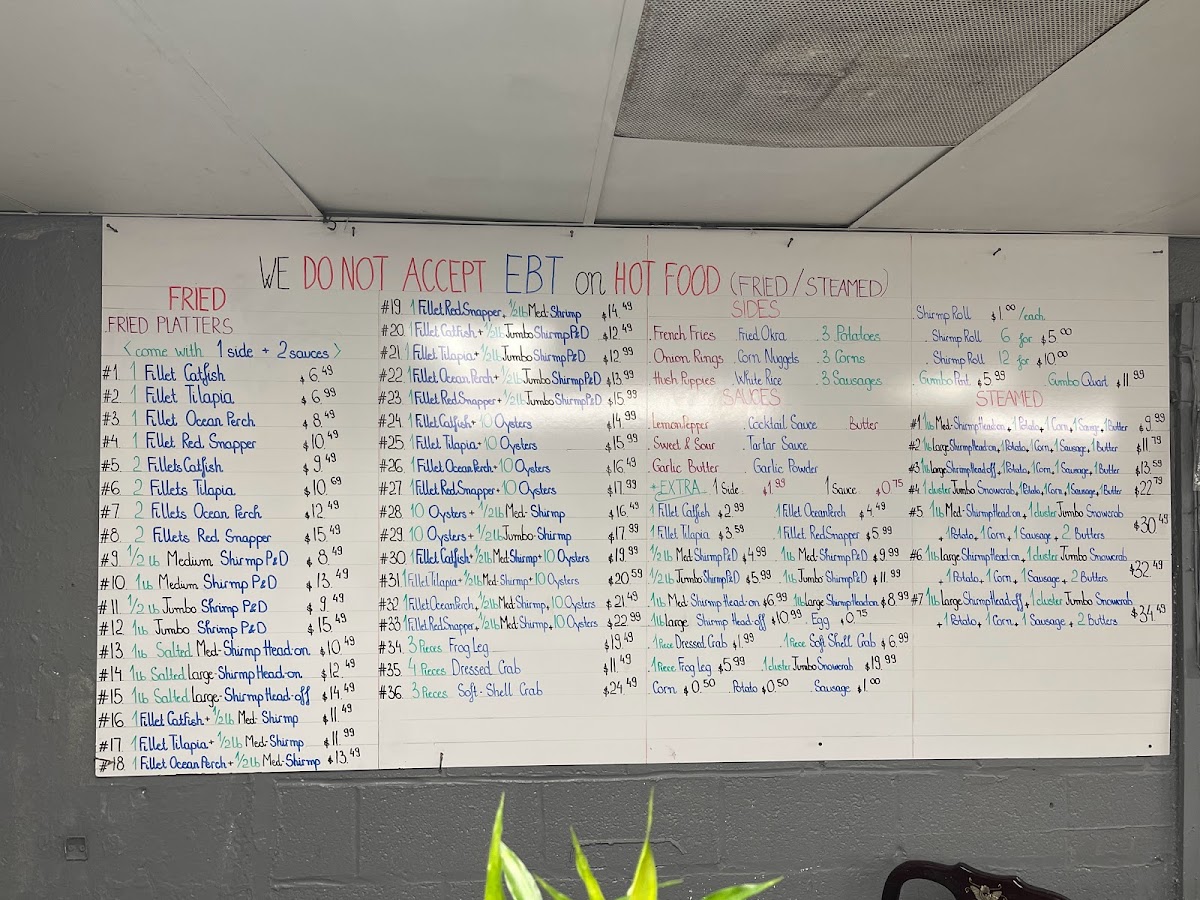 WE DO NOT ACCEPT EBT on HOT FOOD (FRIED/STEAMED)
FRIED
FRIED PLATTERS
<come with 1 side + 2 sauces>
#1. 1 Fillet Catfish $6.49
#2. 1 Fillet Tilapia $6.99
#3. 1 Fillet Ocean Perch $8.49
#4. 1 Fillet Red Snapper $10.49
#5. 2 Fillets Catfish $9.49
#6. 2 Fillets Tilapia $10.69
#7. 2 Fillets Ocean Perch $12.49
#8. 2 Fillets Red Snapper $15.49
#9. 1/2 lb Medium Shirmp P&D $8.49
#10. 1lb Medium Shirmp P&D $13.49
#11. 1/2 lb Jumbo Shrimp P&D $9.49
#12. 1lb Jumbo Shrimp P&D $15.49
#13. 1lb Salted Med-Shirmp Head-on $10.49
#14. 1lb Salted Large-Shirmp Head-on $12.49
#15. 1lb Salted Large-Shirmp Head-off $14.49
#16. 1 Fillet Catfish + 1/2 lb Med-Shirmp $11.49
#17. 1 Fillet Tilapia + 1/2 lb Med-Shirmp $11.99
#18. 1 Fillet Ocean Perch + 1/2 lb Med-Shirmp $13.49
#19. 1 Fillet Red Snapper + 1/2 lb Med-Shirmp $14.49
#20. 1 Fillet Catfish + 1/2 lb Jumbo Shirmp P&D $12.49
#21. 1 Fillet Tilapia + 1/2 lb Jumbo Shirmp P&D $12.99
#22. 1 Fillet Ocean Perch + 1/2 lb Jumbo Shirmp P&D $13.99
#23. 1 Fillet Red Snapper + 1/2 lb Jumbo Shirmp P&D $15.99
#24. 1 Fillet Catfish + 10 Oysters $14.99
#25. 1 Fillet Tilapia + 10 Oysters $15.99
#26. 1 Fillet Ocean Perch + 10 Oysters $16.49
#27. 1 Fillet Red Snapper + 10 Oysters $17.99
#28. 10 Oysters + 1/2 lb Med-Shirmp $16.49
#29. 10 Oysters + 1/2 lb Jumbo-Shirmp $17.99
#30. 1 Fillet Catfish + 1/2 lb Med-Shirmp + 10 Oysters $19.99
#31. 1 Fillet Tilapia + 1/2 lb Med-Shirmp + 10 Oysters $20.59
#32. 1 Fillet Ocean Perch + 1/2 lb Med-Shirmp + 10 Oysters $21.49
#33. 1 Fillet Red Snapper + 1/2 lb Med-Shirmp + 10 Oysters $22.99
#34. 3 Pieces Frog Leg $19.49
#35. 4 Pieces Dressed Crab $11.49
#36. 3 Pieces Soft-Shell Crab $24.49
SIDES
.French Fries .Fried Okra .3 Potatoes
.Onion Rings .Corn Nuggets .3 Corns
.Hush Puppies .White Rice .3 Sausages
SAUCES
.Lemon Pepper .Cocktail Sauce Butter
.Sweet & Sour .Tartar Sauce
.Garlic Butter .Garlic Powder
+ EXTRA 1 Side $1.99 1 Sauce $0.75
1 Fillet Catfish $2.99 1 Fillet Ocean Perch $4.49
1 Fillet Tilapia $3.59 1 Fillet Red Snapper $5.99
1/2 lb Med Shirmp P&D $4.99 1lb Med Shirmp P&D $9.99
1/2 lb Jumbo Shirmp P&D $5.99 1lb Jumbo Shirmp P&D $11.99
1lb Med Shirmp Head-on $6.99 1lb Large Shirmp Head on $8.99
1lb Large Shirmp Head-off $10.99 Egg $0.75
1 Piece Dressed Crab $1.99 1 Piece Soft Shell Crab $6.99
1 Piece Frog Leg $5.99 1 cluster Jumbo Snowcrab $19.99
Corn $0.50 Potato $0.50 Sausage $1.00
Shirmp Roll $1.00/each
.Shirmp Roll 6 for $5.00
.Shirmp Roll 12 for $10.00
.Gumbo Pint $5.99 .Gumbo Quart $11.99
STEAMED
#1 1lb Med-Shirmp Head on, 1 Potato, 1 Corn, 1 Sausage, 1 Butter $9.99
#2 1lb Large Shirmp Head on, 1 Potato, 1 Corn, 1 Sausage, 1 Butter $11.79
#3 1lb Large Shirmp Head off, 1 Potato, 1 Corn, 1 Sausage, 1 Butter $13.59
#4 1 cluster Jumbo Snowcrab, 1 Potato, 1 Corn, 1 Sausage, 1 Butter $22.79
#5 1lb Med-Shirmp Head on, 1 cluster Jumbo Snowcrab
+ 1 Potato, 1 Corn, 1 Sausage + 2 Butters $30.49
#6 1lb Large Shirmp Head on, 1 cluster Jumbo Snowcrab
+ 1 Potato, 1 Corn, 1 Sausage + 2 Butters $32.49
#7 1lb Large Shirmp Head off + 1 cluster Jumbo Snowcrab
+ 1 Potato, 1 Corn, 1 Sausage + 2 Butters $34.49